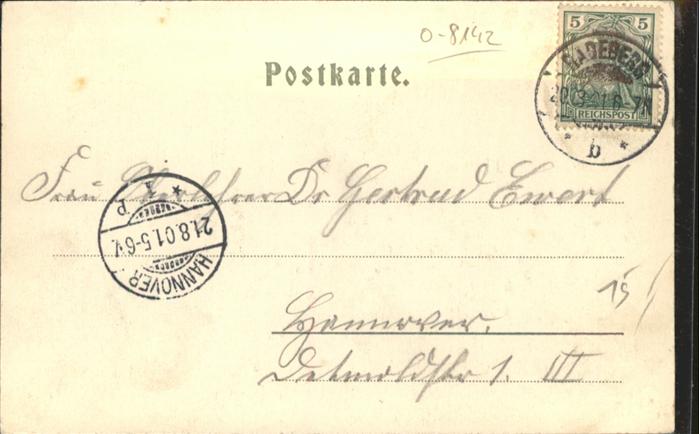 O-8142
Postkarte.
5 5
REICHSPOST
RADEBERG
20.8.01.6-7N
b
Frau Dr Gertrud Ewert
HANNOVER
21.8.01.5-6V.
P
15
Hannover.
Detmoldstr 1. III